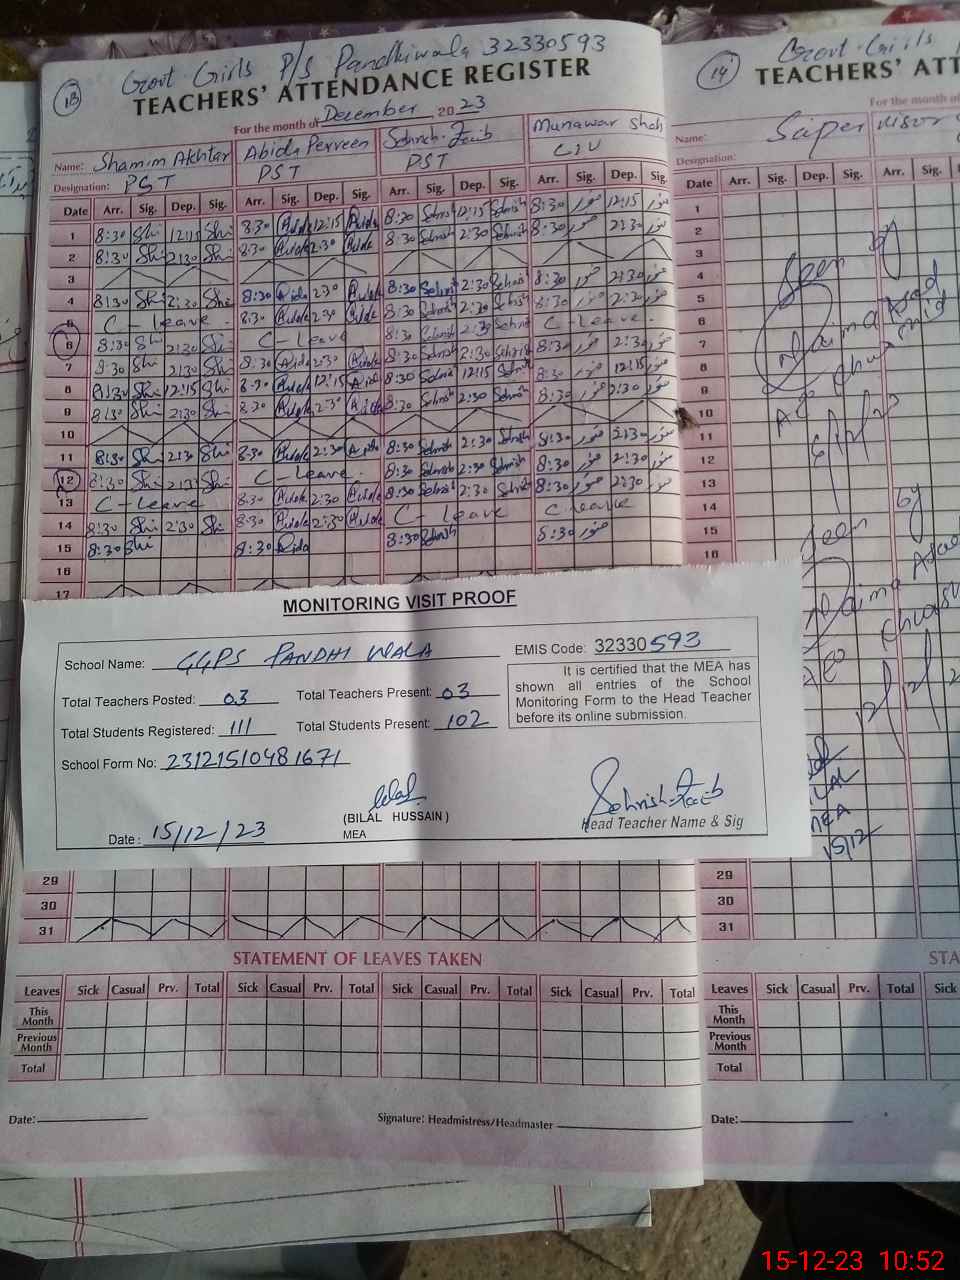 13
Govt Girls P/S Pandhiwala 32330593
TEACHERS' ATTENDANCE REGISTER
For the month of December 20 23
Name: Shamim Akhtar Abida Perveen Sehrish Zaib Munawar Shah
Designation: PST PST PST
Date Arr. Sig. Dep. Sig. Arr. Sig. Dep. Sig. Arr. Sig. Dep. Sig. Arr. Sig. Dep. Sig.
1 8:30 Shi 12:15 Shi 8:30 Abida 12:15 Abida 8:30 Sehrish 12:15 Sehrish 8:30 منور 12:15 منور
2 8:30 Shi 2:30 Shi 8:30 Abida 2:30 Abida 8:30 Sehrish 2:30 Sehrish 8:30 منور 2:30 منور
3
4 8:30 Shi 2:30 Shi 8:30 Abida 2:30 Abida 8:30 Sehrish 2:30 Sehrish 8:30 منور 2:30 منور
5 C - Leave 8:30 Abida 2:30 Abida 8:30 Sehrish 2:30 Sehrish 8:30 منور 2:30 منور
6 8:30 Shi 2:30 Shi C - Leave 8:30 Sehrish 2:30 Sehrish C - Leave
7 8:30 Shi 2:30 Shi 8:30 Abida 2:30 Abida 8:30 Sehrish 2:30 Sehrish 8:30 منور 2:30 منور
8 8:30 Shi 12:15 Shi 8:30 Abida 12:15 Abida 8:30 Sehrish 12:15 Sehrish 8:30 منور 12:15 منور
9 8:30 Shi 2:30 Shi 8:30 Abida 2:30 Abida 8:30 Sehrish 2:30 Sehrish 8:30 منور 2:30 منور
10
11 8:30 Shi 2:30 Shi 8:30 Abida 2:30 Abida 8:30 Sehrish 2:30 Sehrish 8:30 منور 2:30 منور
12 8:30 Shi 2:30 Shi C - Leave 8:30 Sehrish 2:30 Sehrish 8:30 منور 2:30 منور
13 C - Leave 8:30 Abida 2:30 Abida 8:30 Sehrish 2:30 Sehrish 8:30 منور 2:30 منور
14 8:30 Shi 2:30 Shi 8:30 Abida 2:30 Abida C - Leave C leave
15 8:30 Shi 8:30 Abida 8:30 Sehrish 8:30 منور
16
17
MONITORING VISIT PROOF
School Name: GGPS PANDHI WALA
EMIS Code: 32330593
Total Teachers Posted: 03 Total Teachers Present: 03
Total Students Registered: 111 Total Students Present: 102
School Form No: 23121510481671
It is certified that the MEA has
shown all entries of the School
Monitoring Form to the Head Teacher
before its online submission.
Date: 15/12/23
(BILAL HUSSAIN)
MEA
Sehrish Zaib
Head Teacher Name & Sig
29
30
31
STATEMENT OF LEAVES TAKEN
Leaves Sick Casual Prv. Total Sick Casual Prv. Total Sick Casual Prv. Total Sick Casual Prv. Total
This Month
Previous Month
Total
Date:
Signature: Headmistress/Headmaster
14
Govt. Girls
TEACHERS' ATT
For the month of
Name: Supervisor
Designation:
Date Arr. Sig. Dep. Sig. Arr. Sig.
1
2
3
4
5
6
7
8
9
10
11
12
13
14
15
16
Seen by
Naima Asad
Seen by
Naima Asad
MEA
15/12
29
30
31
STA
Leaves Sick Casual Prv. Total Sick
This Month
Previous Month
Total
Date:
15-12-23 10:52